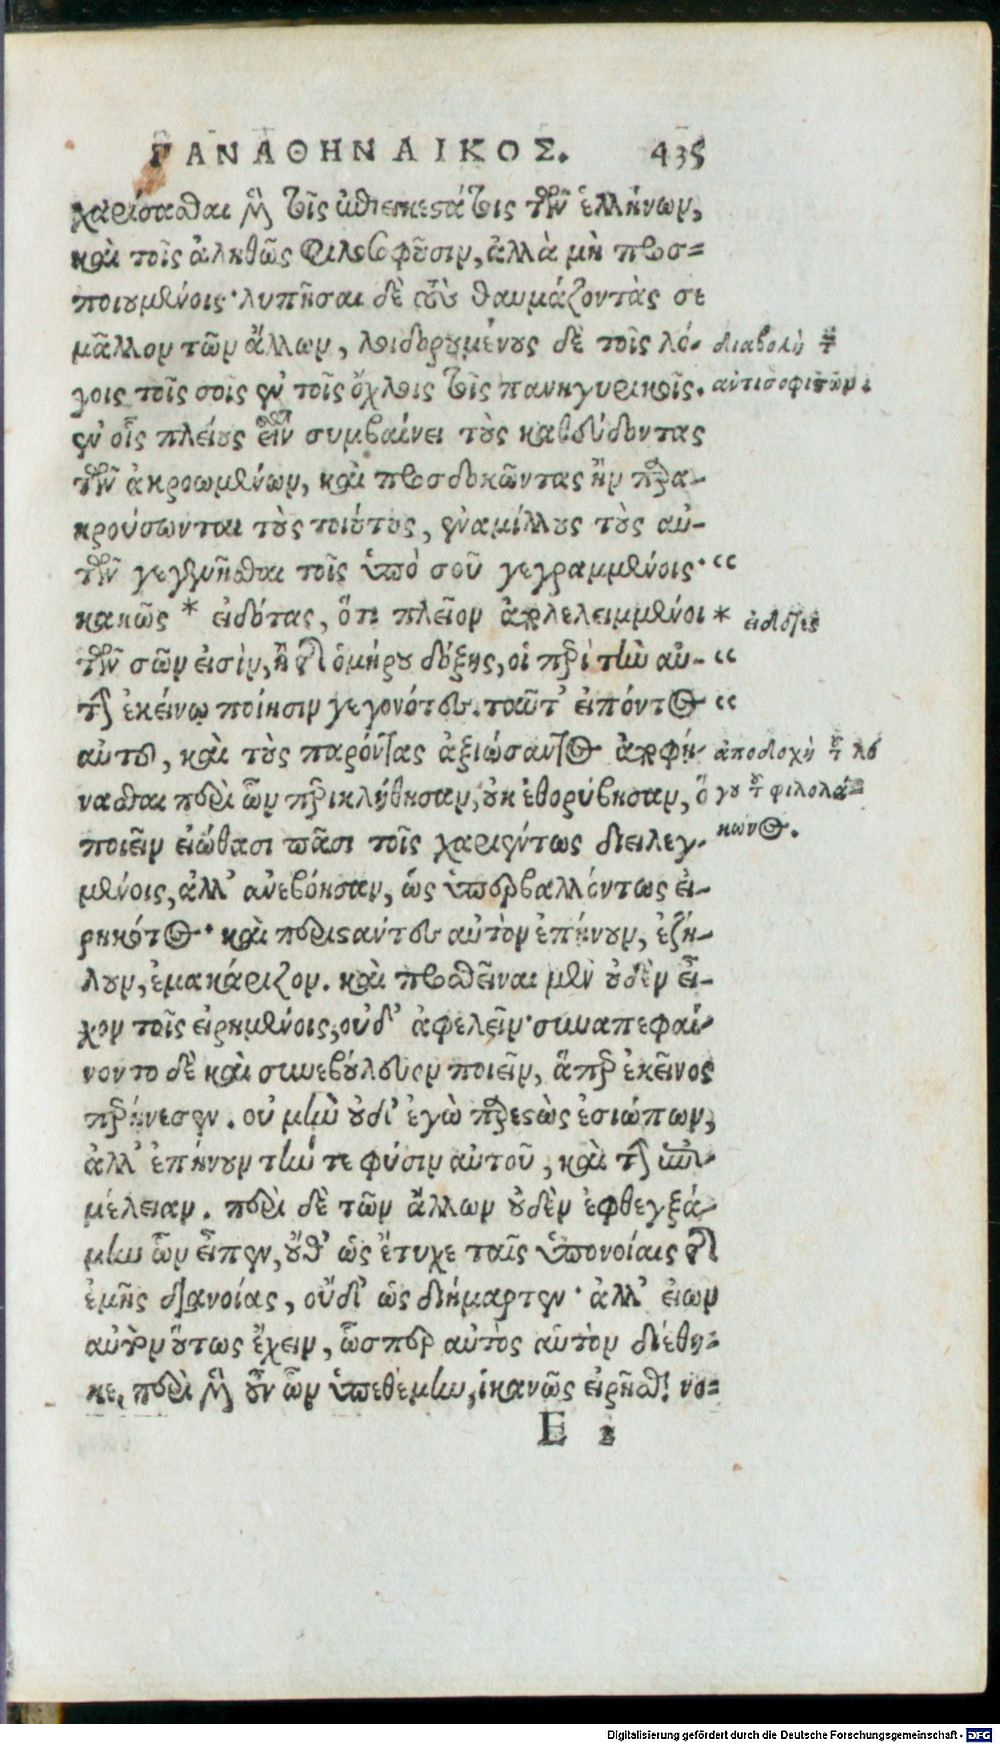 ΠΑΝΑΘΗΝΑΙΚΟΣ. 435
χαρίσασθαι μὲν τοῖς ἐπιεικεστάτοις τῶν ἑλλήνων,
καὶ τοῖς ἀληθῶς φιλοσοφοῦσιν, ἀλλὰ μὴ προσ=
ποιουμένοις· λυπῆσαι δὲ τοὺς θαυμάζοντας σε
μᾶλλον τῶν ἄλλων, λοιδορουμένους δὲ τοῖς λό-
γοις τοῖς σοῖς ἐν τοῖς ὄχλοις τοῖς πανηγυρικοῖς.
ἐν οἷς πλείους ἐστὶν συμβαίνει τοὺς καθεύδοντας
τῶν ἀκροωμένων, καὶ προσδοκῶντας ἢν παρα-
κρούσωνται τοὺς τοιούτους, ἐναμίλλους τοὺς αὐ-
τῶν γεγενῆσθαι τοῖς ὑπὸ σοῦ γεγραμμένοις· “
κακῶς * εἰδότας, ὅτι πλεῖον ἀπολελειμμένοι
τῶν σῶν εἰσὶν, ἢ τῆς ὁμήρου δόξης, οἱ περὶ τὴν αὐ- “
τὴν ἐκείνῳ ποίησιν γεγονότες. ταῦτ' εἰπόντος “
αὐτοῦ, καὶ τοὺς παρόντας ἀξιώσαντος ἀποφή-
νασθαι περὶ ὧν παρεκλήθησαν, οὐκ ἐθορύβησαν, ὃ
ποιεῖν εἰώθασι πᾶσι τοῖς χαριέντως διειλεγ-
μένοις, ἀλλ' ἀνεβόησαν, ὡς ὑπερβαλλόντως εἰ-
ρηκότος· καὶ περιστάντες αὐτὸν ἐπῄνουν, ἐζή-
λουν, ἐμακάριζον. καὶ προσθεῖναι μὲν οὐδὲν εἶ-
χον τοῖς εἰρημένοις, οὐδ' ἀφελεῖν· συναπεφαί-
νοντο δὲ καὶ συνεβούλευον ποιεῖν, ἅπερ ἐκεῖνος
παρῄνεσεν. οὐ μὴν οὐδ' ἐγὼ παρεστὼς ἐσιώπων,
ἀλλ' ἐπῄνουν τήν τε φύσιν αὐτοῦ, καὶ τὴν ἐπι-
μέλειαν. περὶ δὲ τῶν ἄλλων οὐδὲν ἐφθεγξά-
μην ὧν εἶπεν, οὔθ' ὡς ἔτυχε ταῖς ὑπονοίαις τῆς
ἐμῆς διανοίας, οὔδ' ὡς διήμαρτεν· ἀλλ' εἴων
αὐτὸν οὕτως ἔχειν, ὥσπερ αὐτὸς αὑτὸν διέθη-
κε. περὶ μὲν οὖν ὧν ὑπεθέμην, ἱκανῶς εἰρῆσθαι νο=
E 2
διαβολὴ τῶν
ἀντισοφιστῶν.
* εἰδότες
ἀποδοχὴ τοῦ λό
γου τοῦ φιλολά=
κωνος.
Digitalisierung gefördert durch die Deutsche Forschungsgemeinschaft - DFG